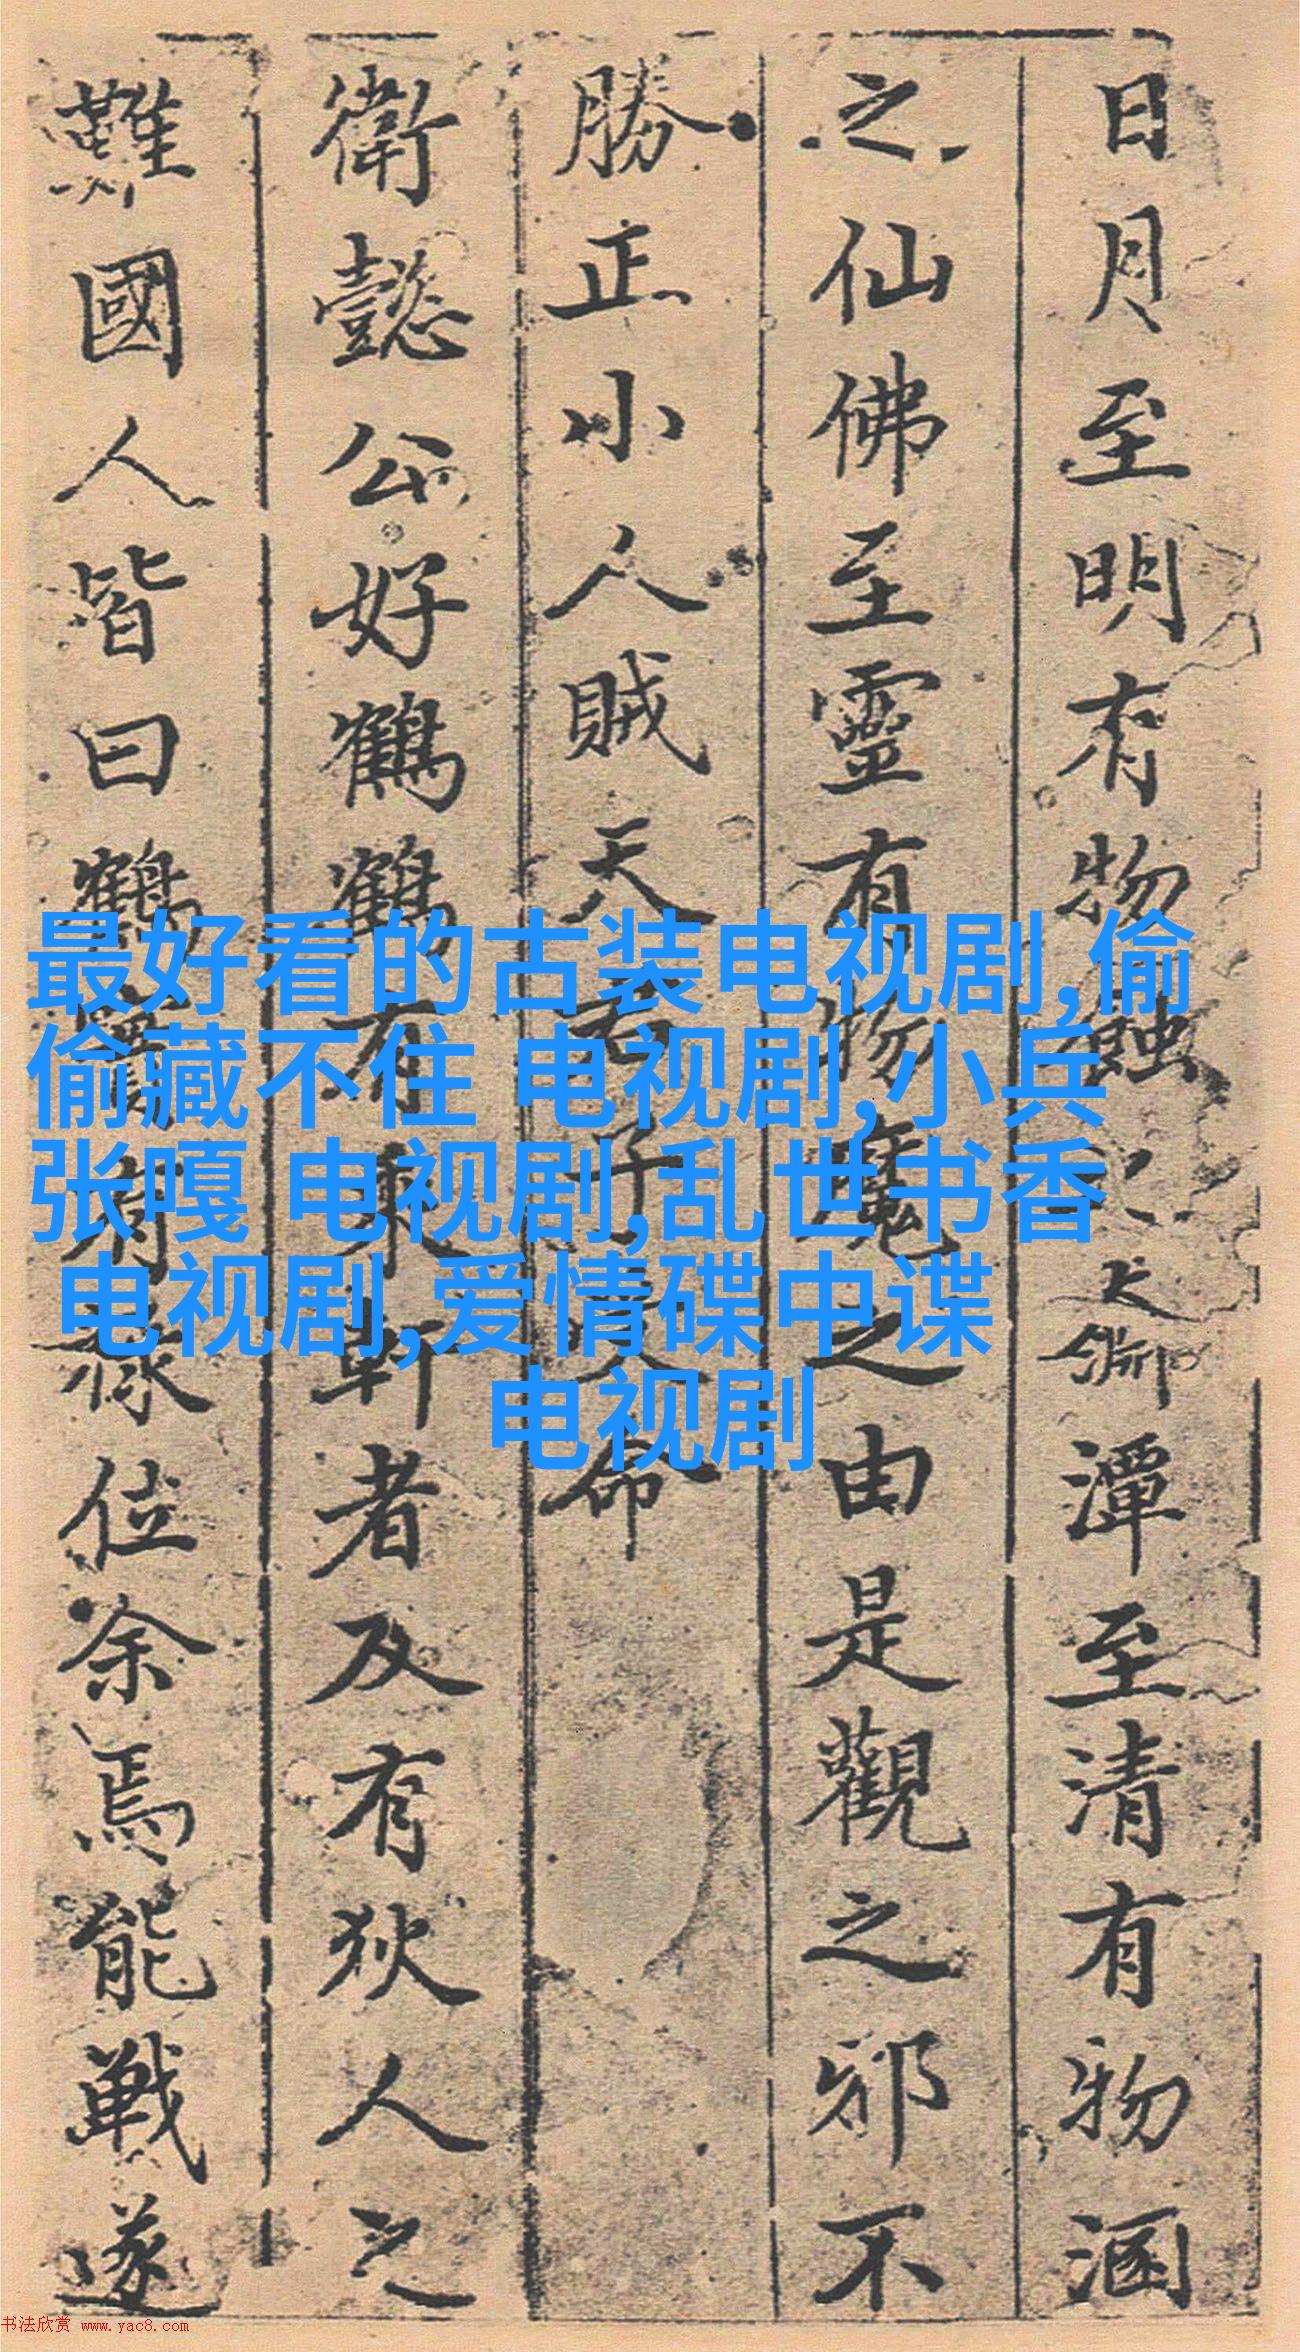 日月至明有物蝕之大淵潭至清有物溷
之仙佛至靈有物魔之由是觀之邪不
勝正小人賊天君子之命
衛懿公好鶴鶴有乘軒者及有狄人之
難國人皆曰鶴實有祿位余焉能戰遂
最好看的古装电视剧,偷
偷藏不住 电视剧,小兵
张嘎 电视剧,乱世书香
电视剧,爱情碟中谍
电视剧
书法欣赏 www.yac8.com